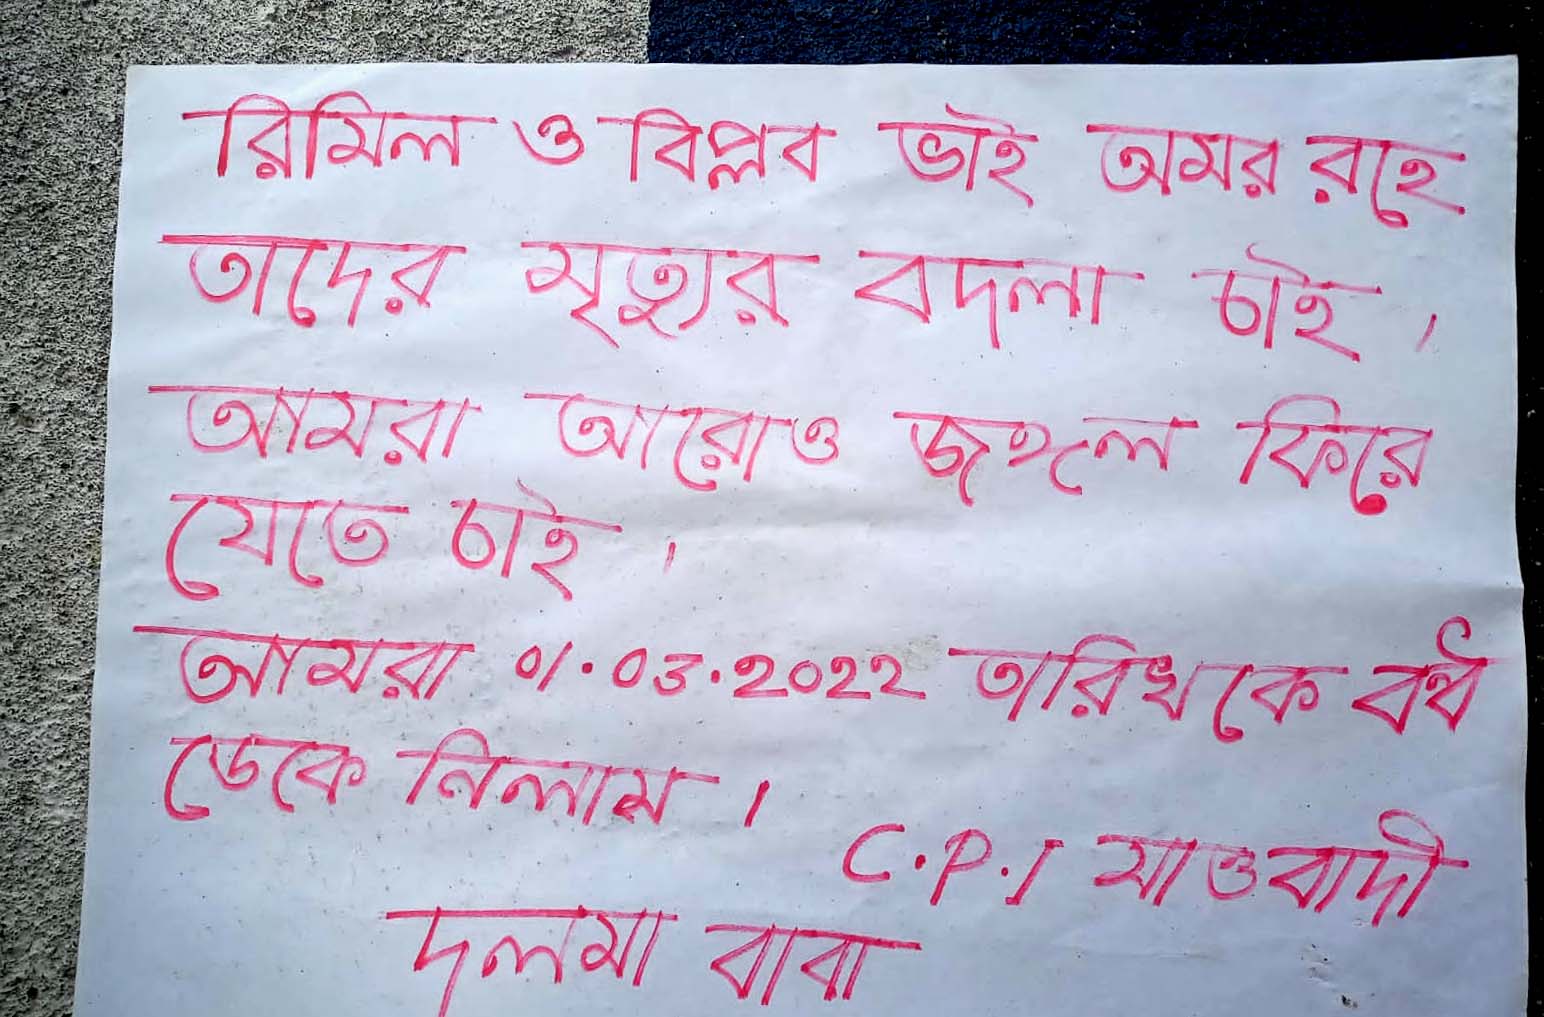 রিমিল ও বিপ্লব ভাই অমর রহে
তাদের মৃত্যুর বদলা চাই ।
আমরা আরোও জঙ্গল ফিরে
যেতে চাই ।
আমরা 01.03.2022 তারিখকে বর্ধ
ডেকে নিলাম ।
C.P.I মাওবাদী
দলমা বাবা